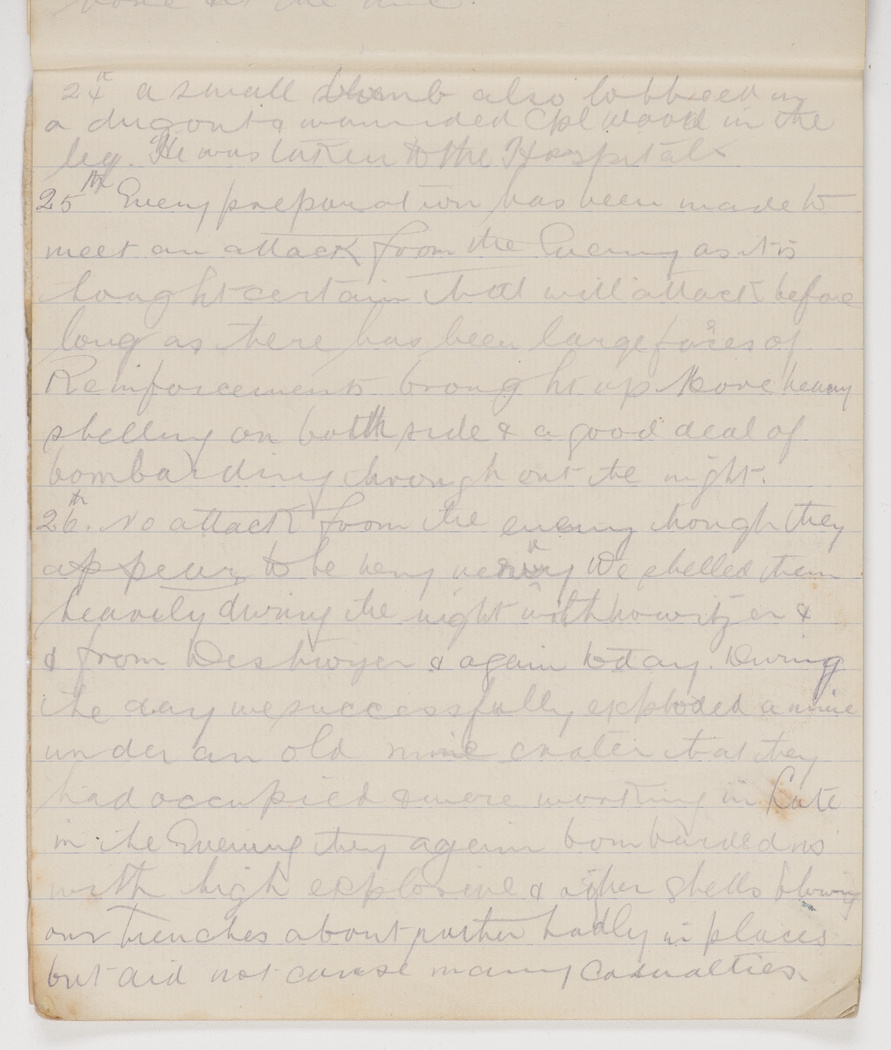 24th a small bomb also lobbed in
a dugout & wounded Cpl Wood in the
leg. He was taken to the Hospital.
25th Every preparation has been made to
meet an attack from the Enemy as it is
thought certain that will attack before
long as there has been large forces of
Reinforcements brought up More heavy
shelling on both side & a good deal of
bombarding through out the night.
26th. No attack from the enemy though they
appear to be very We shelled them
heavily during the night with howitzer &
& from Destroyer & again today. During
the day we successfully exploded a mine
under an old mine crater that they
had occupied & were working in Late
in the Evening they again bombarded us
with high explosive & other shells blowing
our trenches about rather badly in places
but did not cause many casualties.